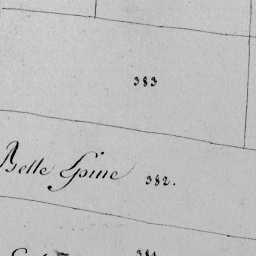 383
Belle Epine 382.